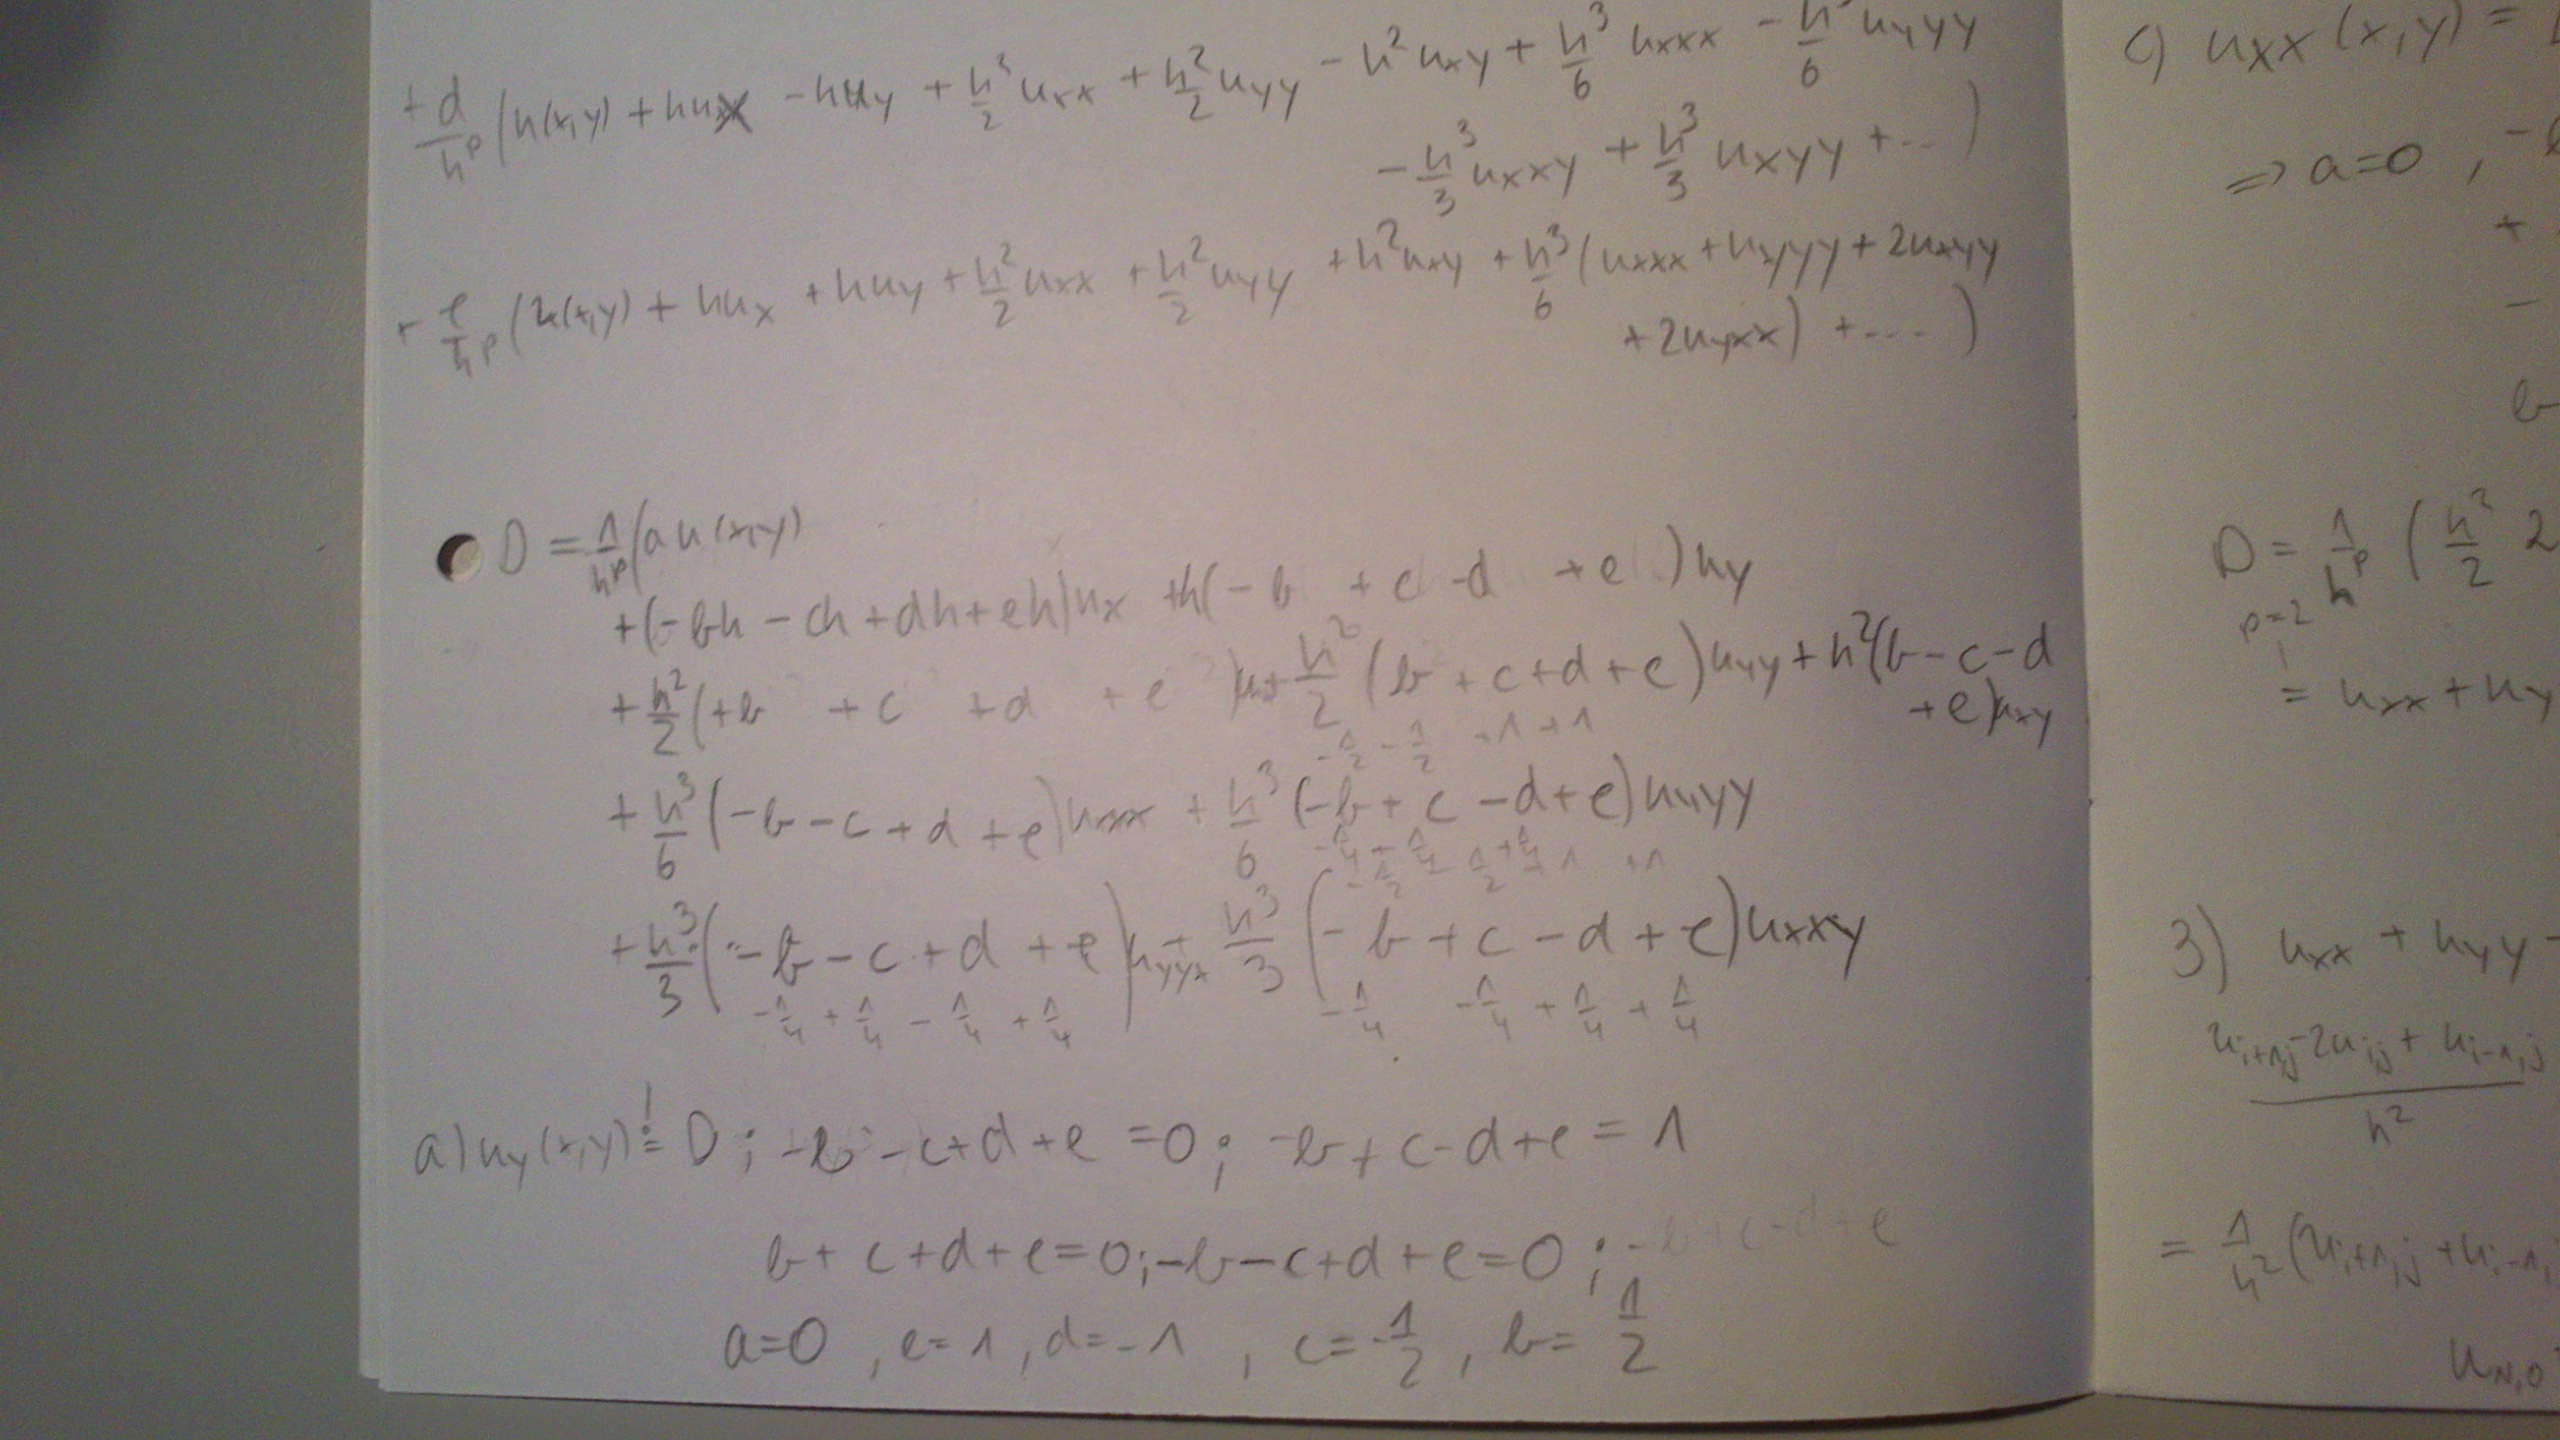 + d/h^p (u(x,y) + hux - huy + h^2/2 uxx + h^2/2 uyy - h^2 uxy + h^3/6 uxxx - h^3/6 uyyy
- h^3/3 uxxy + h^3/3 uxyy + ... )
+ e/h^p (u(x,y) + hux + huy + h^2/2 uxx + h^2/2 uyy + h^2 uxy + h^3/6 (uxxx + uyyy + 2uxyy
+ 2uyxx) + .... )
D = 1/h^p (a u(x,y)
+ (-bh - ch + dh + eh)ux + h(-b + c - d + e )uy
+ h^2/2 (+b + c + d + e ) + h^2/2 (b + c + d + e)uyy + h^2(b - c - d
+ e)uxy
-1/2 - 1/2 -1 +1
+ h^3/6 (-b - c + d + e)uxxx + h^3/6 (-b + c - d + e)uyyy
+ h^3/3 (-b - c + d + e)uyyx + h^3/3 (-b + c - d + e)uxxy
-1/4 + 1/4 - 1/4 + 1/4 -1/4 -1/4 + 1/4 + 1/4
a) uy(x,y) != D ; -b - c + d + e = 0 ; -b + c - d + e = 1
b + c + d + e = 0 ; -b - c + d + e = 0 ; -b + c - d + e
a = 0 , e = 1 , d = -1 , c = -1/2 , b = 1/2
c) uxx (x,y) =
=> a = 0 , -
+
-
b
D = 1/h^p ( h^2/2 2
p=2
= uxx + uy
3) uxx + uyy -
ui+1,j - 2ui,j + ui-1,j
h^2
= 1/h^2 (ui+1,j + ui-1,
uN,0